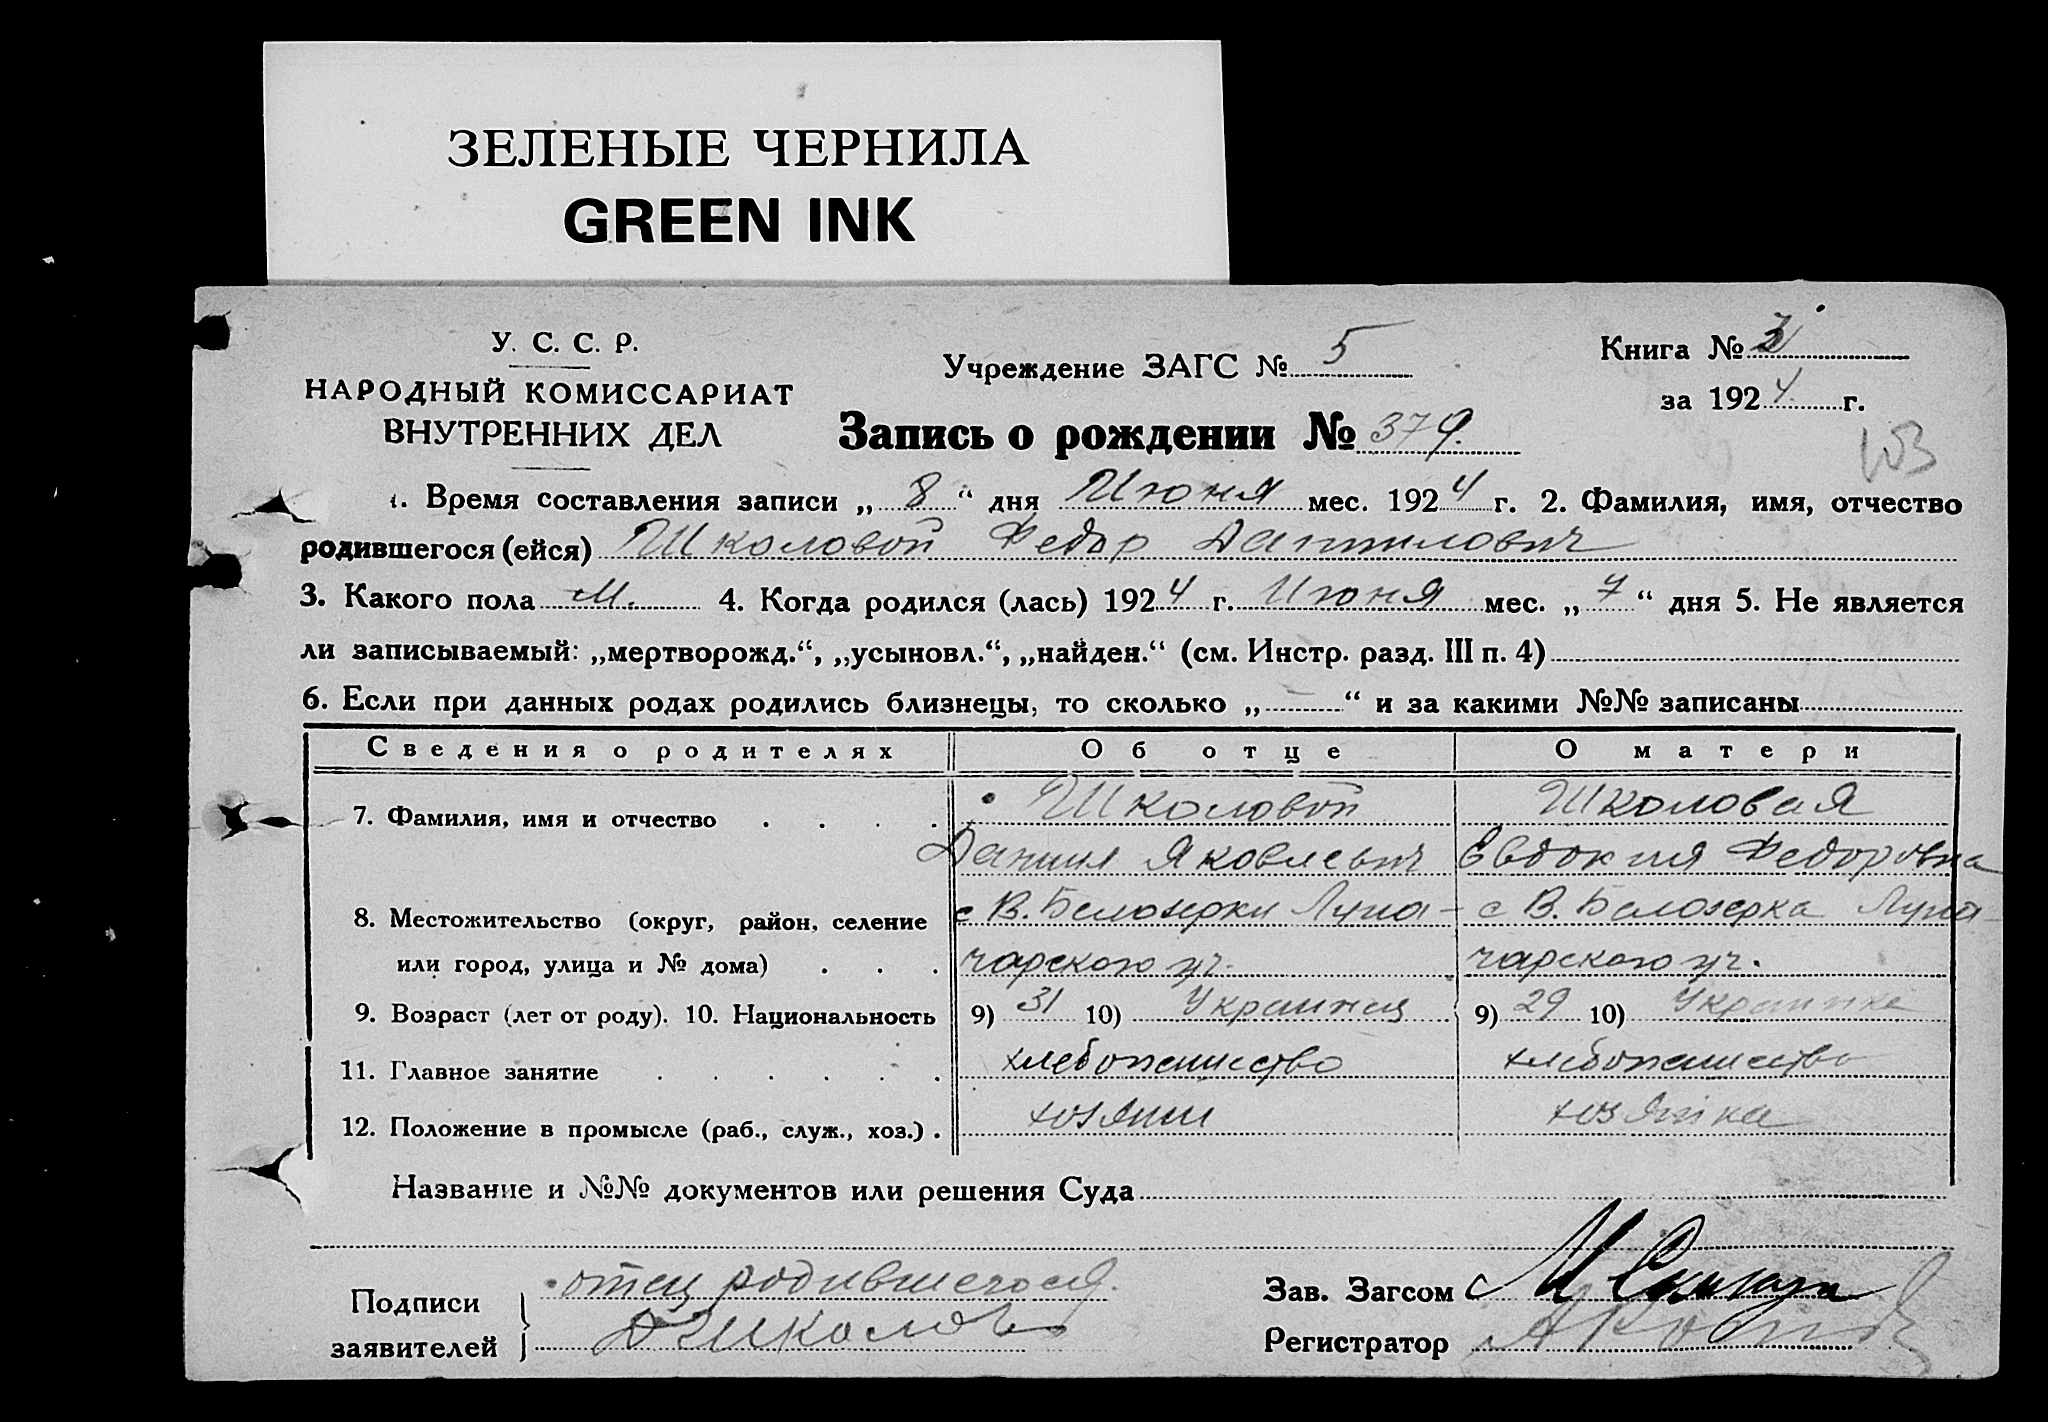 ЗЕЛЕНЫЕ ЧЕРНИЛА
GREEN INK
У. С. С. Р.
НАРОДНЫЙ КОМИССАРИАТ
ВНУТРЕННИХ ДЕЛ
Учреждение ЗАГС № 5
Книга №
за 1924 г.
Запись о рождении № 379.
103
1. Время составления записи „ 8 “ дня Июня мес. 1924 г. 2. Фамилия, имя, отчество
родившегося (ейся) Школовой Федор Данилович
3. Какого пола М. 4. Когда родился (лась) 1924 г. Июня мес. „ 7 “ дня 5. Не является
ли записываемый: „мертворожд.“, „усыновл.“, „найден.“ (см. Инстр. разд. III п. 4)
6. Если при данных родах родились близнецы, то сколько „ — “ и за какими №№ записаны
Сведения о родителях Об отце О матери
7. Фамилия, имя и отчество . . . . Школовой Школовая
Даниил Яковлевич Евдокия Федоровна
8. Местожительство (округ, район, селение с В. Белозерки Луна- с В. Белозерка Луна-
или город, улица и № дома) . . . чарского уч. чарского уч.
9. Возраст (лет от роду). 10. Национальность 9) 31 10) Украинец 9) 29 10) Украинка
11. Главное занятие . . . . . . хлебопашество хлебопашество
12. Положение в промысле (раб., служ., хоз.) . хозяин хозяйка
Название и №№ документов или решения Суда
Подписи
заявителей
отец родившегося.
ДШколово
Зав. Загсом
Регистратор